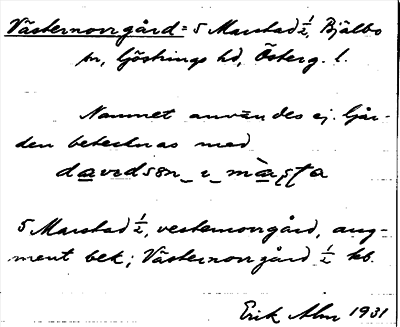 Västernorrgård = 5 Marstad ½, Bjälbo
sn, Göstrings hd, Österg. l.
Namnet användes ej. Går-
den betecknas med
5 Marstad ½, vesternorrgård, aug-
ment bek; Västernorrgård ½ hb.
Erik Alm 1931